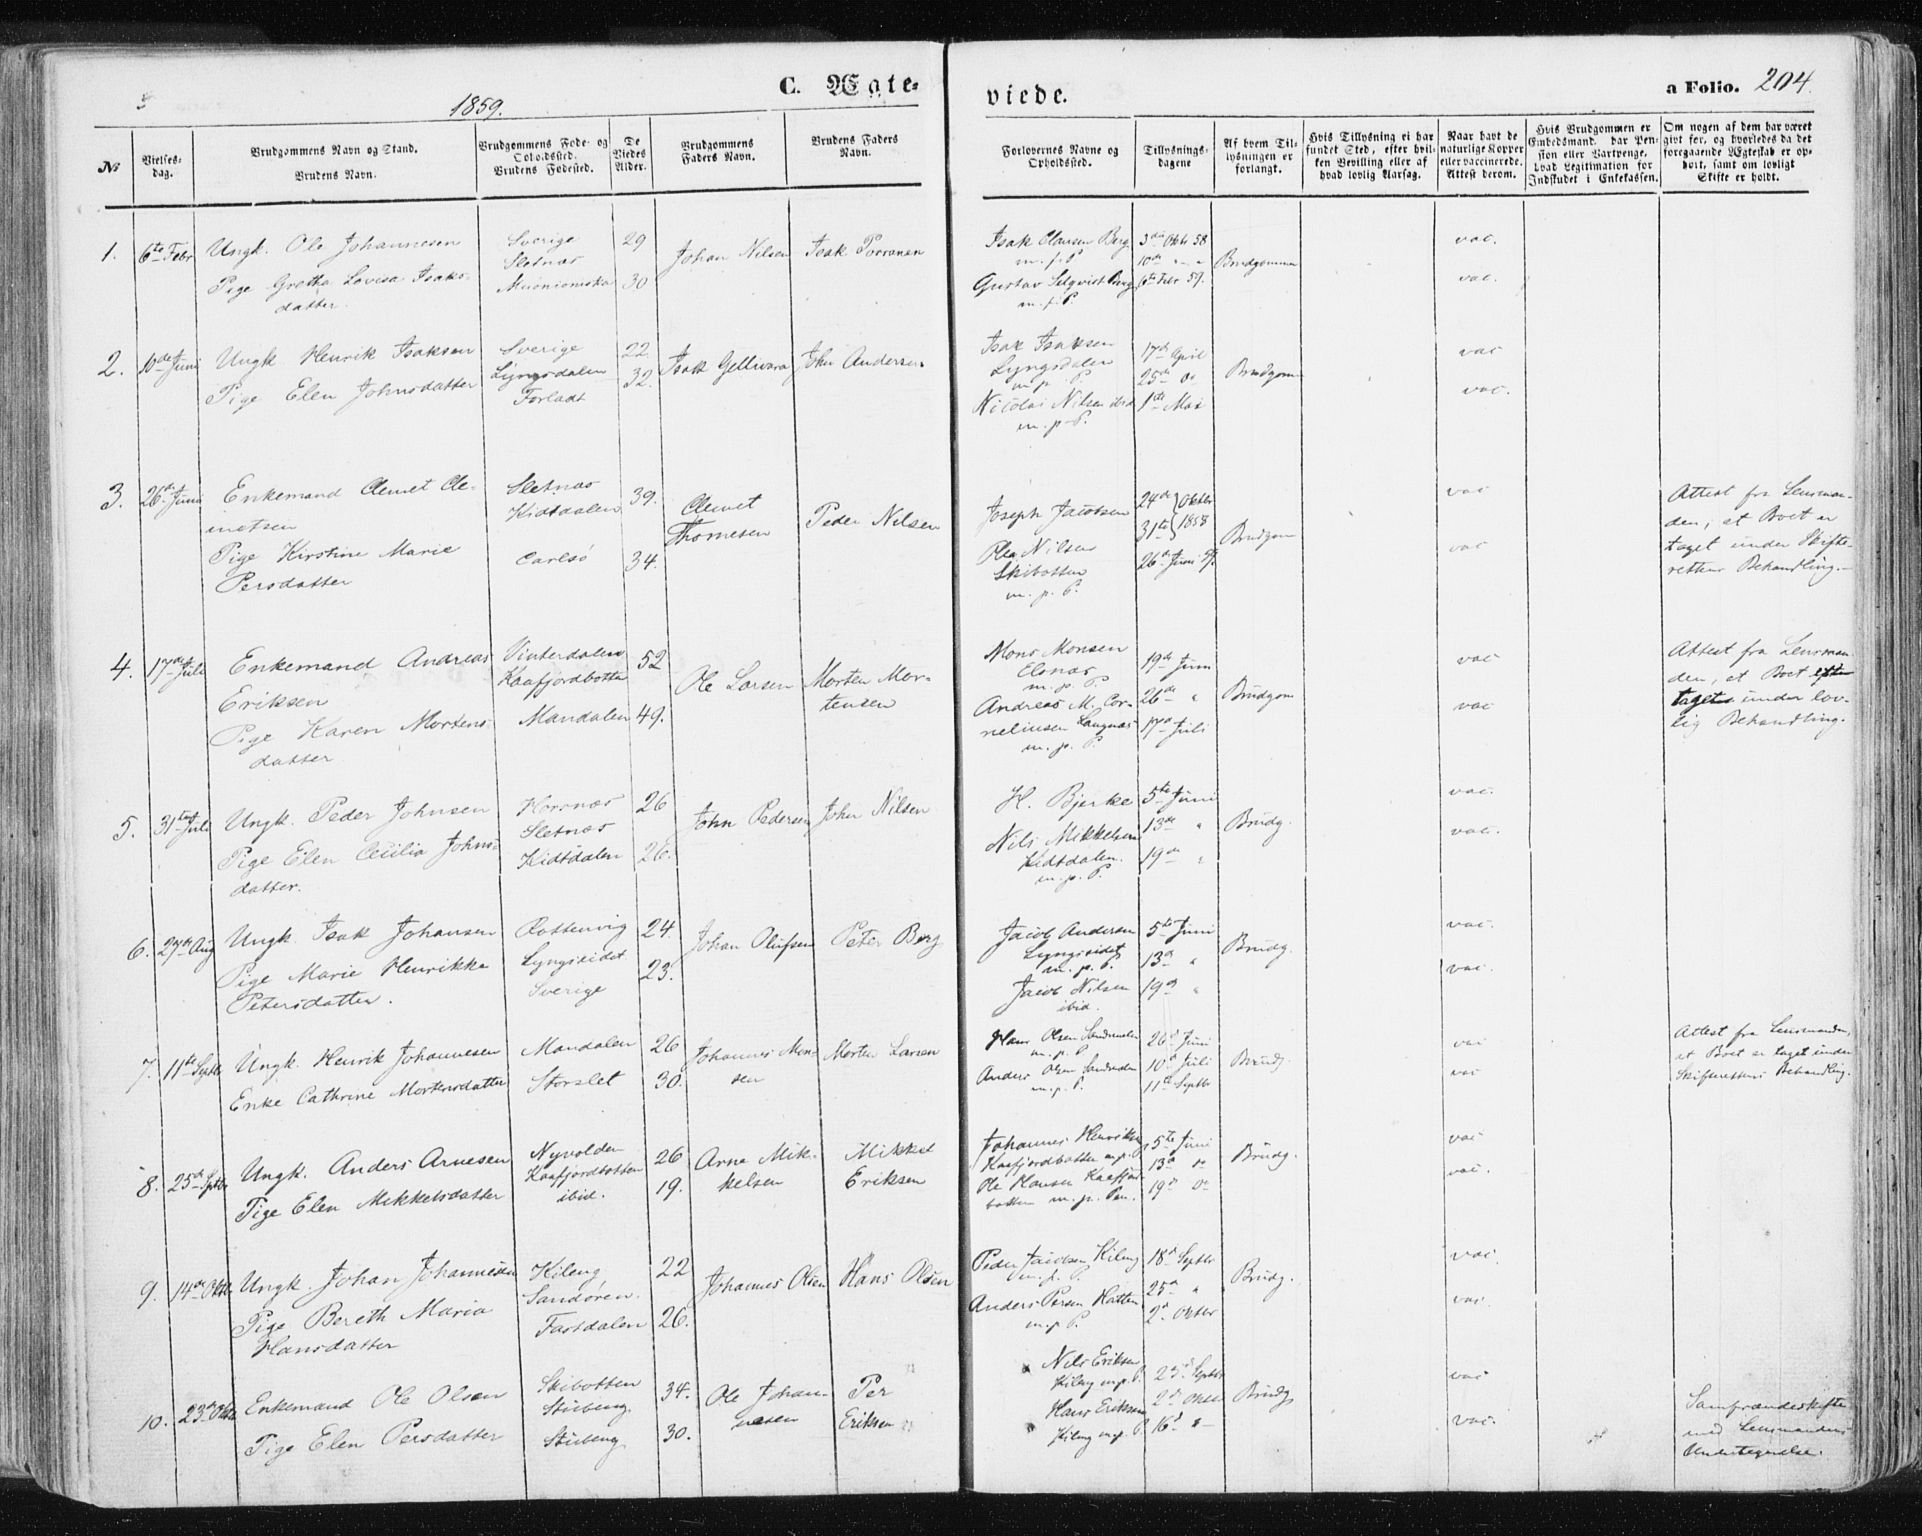 C. Ægte-
viede.
a Folio. 204.
1859.
No
Vielses-
dag.
Brudgommens Navn og Stand.
Brudens Navn.
Brudgommens Føde- og
Opholdssted.
Brudens Fødested.
De
Viedes
Alder.
Brudgommens
Faders Navn.
Brudens Faders
Navn.
Forlovernes Navne og
Opholdssted.
Tillysnings-
dagene
Af hvem Til-
lysningen er
forlangt.
Hvis Tillysning ei har
fundet Sted, efter hvil-
ken Bevilling eller af
hvad lovlig Aarsag.
Naar havt de
naturlige Kopper
eller vaccinerede.
Attest derom.
Hvis Brudgommen er
Embedsmand, har Pen-
sion eller Vartpenge,
hvad Legitimation for
Indskudet i Enkekassen.
Om nogen af dem har været
givt før, og hvorledes da det
foregaaende Ægteskab er op-
hørt, samt om lovligt
Skifte er holdt.
1. 6te Febr
Ungk. Ole Johannesen
Pige Gretha Lovisa Isaks-
datter.
Sverige
Sletnæs
Muonioniska
29
30
Johan Nilsen
Isak
Isak Clausen Berg
m. p. P.
Gustav
m. p. P.
3die Oktr 58
10de " - "
6te Febr 59.
Brudgommen
vac.
vac.
2. 10de Juni
Ungk Henrik Isaksen
Pige Elen Johnsdatter
Sverige
Lyngsdalen
Forladt
22.
32.
Isak Gellivara
John Andersen
Isak Isaksen
Lyngsdalen
m. p. P.
Nicolai Nilsen ibid
m. p. P.
17de April
25de do
1ste Mai
Brudgom
vac
vac.
3. 26de Juni
Enkemand Clemet Cle-
metsen
Pige Kirstine Marie
Persdatter
Sletnæs
Kidtdalen
Carlsø
39.
34.
Clemet
Thomesen
Peder Nilsen
Joseph Jacobsen
Ole Nilsen
Skibotten
m. p. P.
24de Oktbr
31te 1858
26de Juni 59.
Brudgom
vac
vac
Attest fra Lensman-
den, at Boet er
taget under Skifte-
rettens Behandling.
4. 17de Juli
Enkemand Andreas
Eriksen
Pige Karen Mortens
datter
Vinterdalen
Kaafjordbotten
Mandalen
52
49.
Ole Larsen
Morten Mor-
tensen
Mons Monsen
Elsnæs
m. p. P.
Andreas M. Cor-
neliusen Langnæs
m. p. P.
19de Juni
26de "
17de Juli
Brudgom
vac
vac
Attest fra Lensman-
den, at Boet
taget under lov-
lig Behandling.
5. 31te Juli
Ungk. Peder Johnsen
Pige Elen Cecilia Johns-
datter.
Horsnæs
Sletnæs
Kidtdalen
26
26.
John Pedersen
John Nilsen
H. Bjerke
Nils Mikkelsen
Kidtdalen.
m. p. P.
5te Juni
13de "
19de "
Brudg.
vac.
vac.
6. 27de Aug
Ungk. Isak Johansen
Pige Marie Henrikke
Petersdatter.
Rottenvig
Lyngseidet
Sverige
24.
23.
Johan Olufsen
Peter Berg
Jacob Andersen
Lyngseidet
m. p. P.
Jacob Nilsen
ibid.
5te Juni
13d "
19d "
Brudg.
vac.
vac.
7. 11te Septbr
Ungk. Henrik Johannesen
Enke Cathrine Mortensdatter
Mandalen
Storslet
26
30.
Johannes Mon-
sen
Morten Larsen
Hans Olsen
m. p. P
Anders Olsen
m. p. P.
26d Juni
10d Juli
11te Septbr
Brudg.
vac
vac
Attest fra Lensmanden,
at Boet er taget under
Skifterettens Behandling.
8. 25de Septbr
Ungk. Anders Arnesen
Pige Elen Mikkelsdatter
Nyvolden
Kaafjordbotten
ibid.
26
19.
Arne Mik-
kelsen
Mikkel
Eriksen
Johannes Henriksen
Kaafjordbotten m.p.P.
Ole Hansen Kaafjord
botten m. p. Pen.
5te Juni
13d do
19d do
Brudg.
vac
vac.
9. 14de Oktbr
Ungk. Johan Johannesen
Pige Bereth Maria
Hansdatter
Kileng
Sandøren.
Fastdalen
22
26.
Johannes Olsen
Hans Olsen
Peder Jacobsen Kileng
m. p. P.
Anders Persen Hatten
m. p. P.
18d Septbr
25d "
2d Oktbr
Brudg.
vac.
vac.
10. 23de Oktbr
Enkemand Ole Olsen
Pige Elen Persdatter
Skibotten
Stubeng
Stubeng
34.
30.
Ole Johan-
nesen
Per
Eriksen
Nils Eriksen
Kileng m.p.P.
Hans Eriksen
Kileng m.p. P.
25d Septbr
2d Oktbr
16d " -
Brudg
vac
vac.
Samfrændeskifte
med Lensmandens
Undertegnelse.